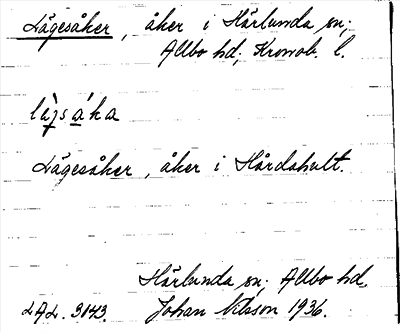 Lågesåker, åker i Härlunda sn;
Allbo hd; Kronob. l.
lågsáka
Lågesåker, åker i Hårdahult.
Härlunda sn; Allbo hd.
LAL. 3143. Johan Nilsson 1936.